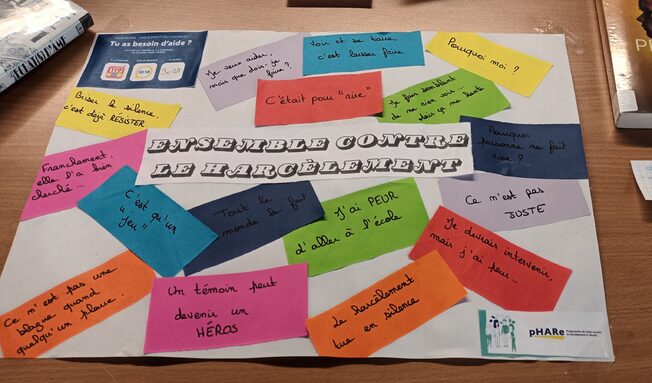 Tu as besoin d'aide ?
3018
Je veux aider,
mais que dois-je
faire ?
Voir et se taire,
c'est laisser faire
Pourquoi moi ?
Briser le silence,
c'est déjà RÉSISTER
C'était pour "rire"
Je fais semblant
de ne rien voir...
mais ça me hante
ENSEMBLE CONTRE
LE HARCÈLEMENT
Pourquoi
personne ne fait
rien ?
Franchement,
elle l'a bien
cherché...
C'est qu'un
"jeu"
Tout le
monde le fait
J'ai PEUR
d'aller à l'école
Ce n'est pas
JUSTE
Je devrais intervenir,
mais j'ai peur...
Ce n'est pas une
blague quand
quelqu'un pleure.
Un témoin peut
devenir un
HÉROS
Le harcèlement
tue en silence
pHARe